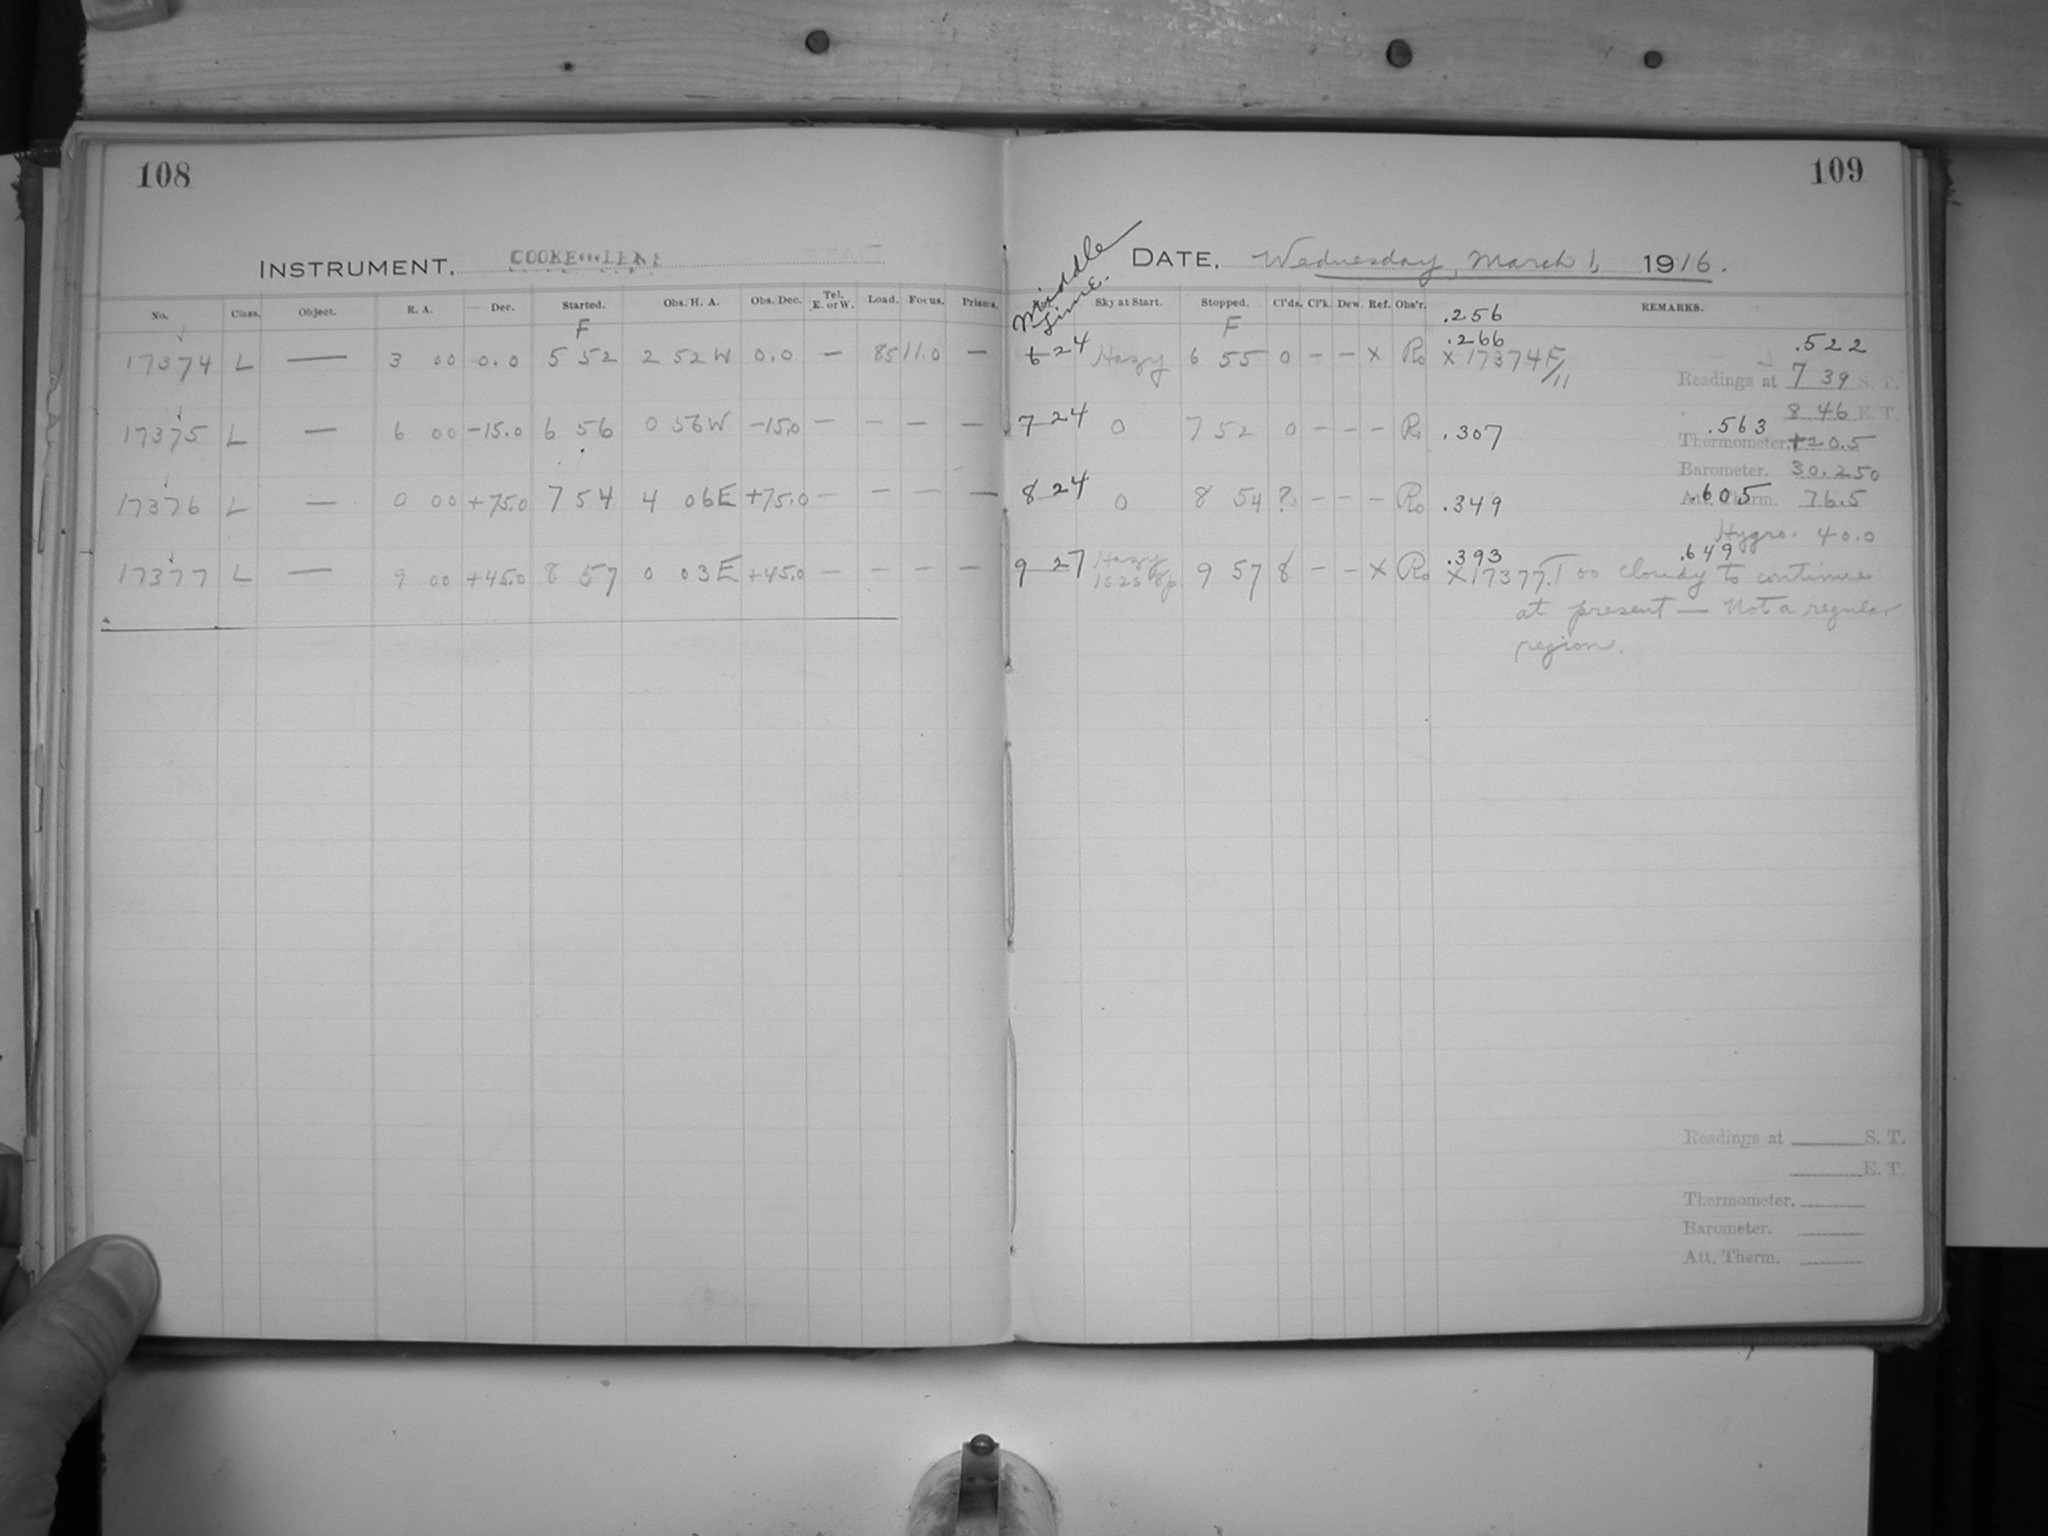 108
INSTRUMENT. COOKE LENS
No. Class. Object. R. A. Dec. Started. Obs. H. A. Obs. Dec. Tel. E. or W. Load. Focus. Prisms.
F
17374 L — 3 00 0.0 5 52 2 52 W 0.0 — 85 11.0 —
17375 L — 6 00 -15.0 6 56 0 56 W -15.0 — — — —
17376 L — 0 00 +75.0 7 54 4 06 E +75.0 — — — —
17377 L — 9 00 +45.0 8 57 0 03 E +45.0 — — — —
109
Middle Time.
DATE. Wednesday, March 1, 1916.
Sky at Start. Stopped. Cl'ds. Cl'k. Dew. Ref. Obs'r. REMARKS.
F .256
.266 .522
6 24 Hazy 6 55 0 — — x Ro x 17374 F/11
Readings at 7 39 S. T.
8 46 E. T.
7 24 0 7 52 0 — — — Ro .307 .563
Thermometer. +20.5
Barometer. 30.250
8 24 0 8 54 ? — — — Ro .349 .605
Att. Therm. 76.5
Hygro. 40.0
.393 .649
9 27 Hazy 9 57 8 — — x Ro x 17377. Too cloudy to continue
at present — Not a regular
region.
Readings at S. T.
E. T.
Thermometer.
Barometer.
Att. Therm.